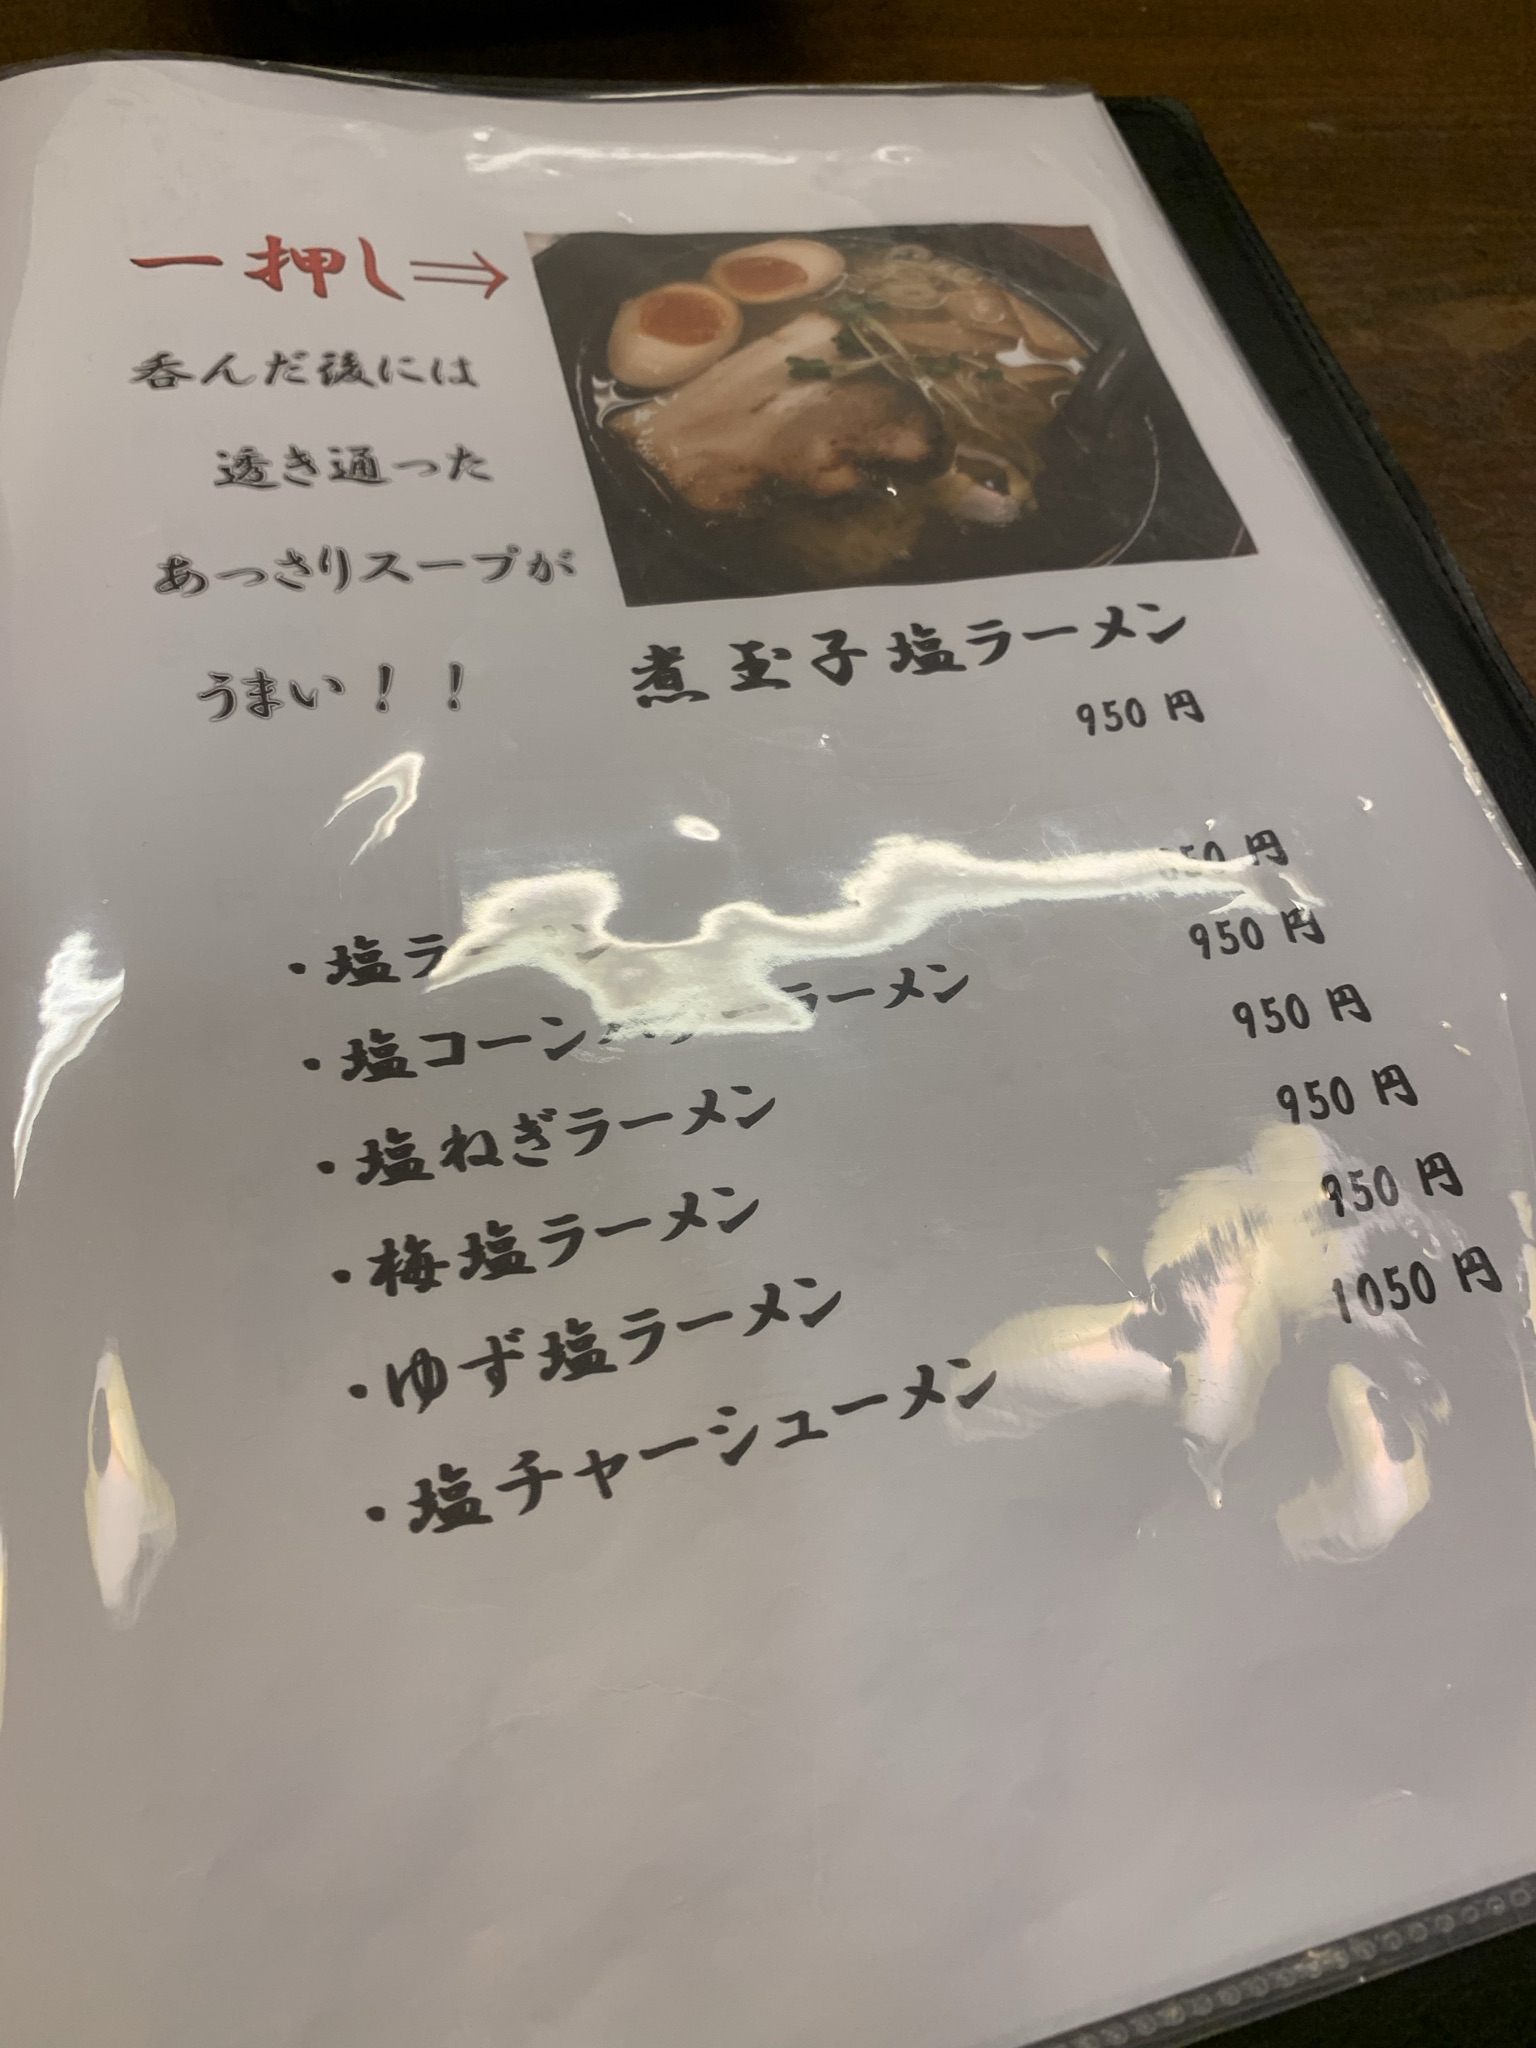 一押し⇒
呑んだ後には
透き通った
あっさりスープが
うまい！！
煮玉子塩ラーメン
950 円
・塩ラーメン 850 円
・塩コーンバターラーメン 950 円
・塩ねぎラーメン 950 円
・梅塩ラーメン 950 円
・ゆず塩ラーメン 950 円
・塩チャーシューメン 1050 円